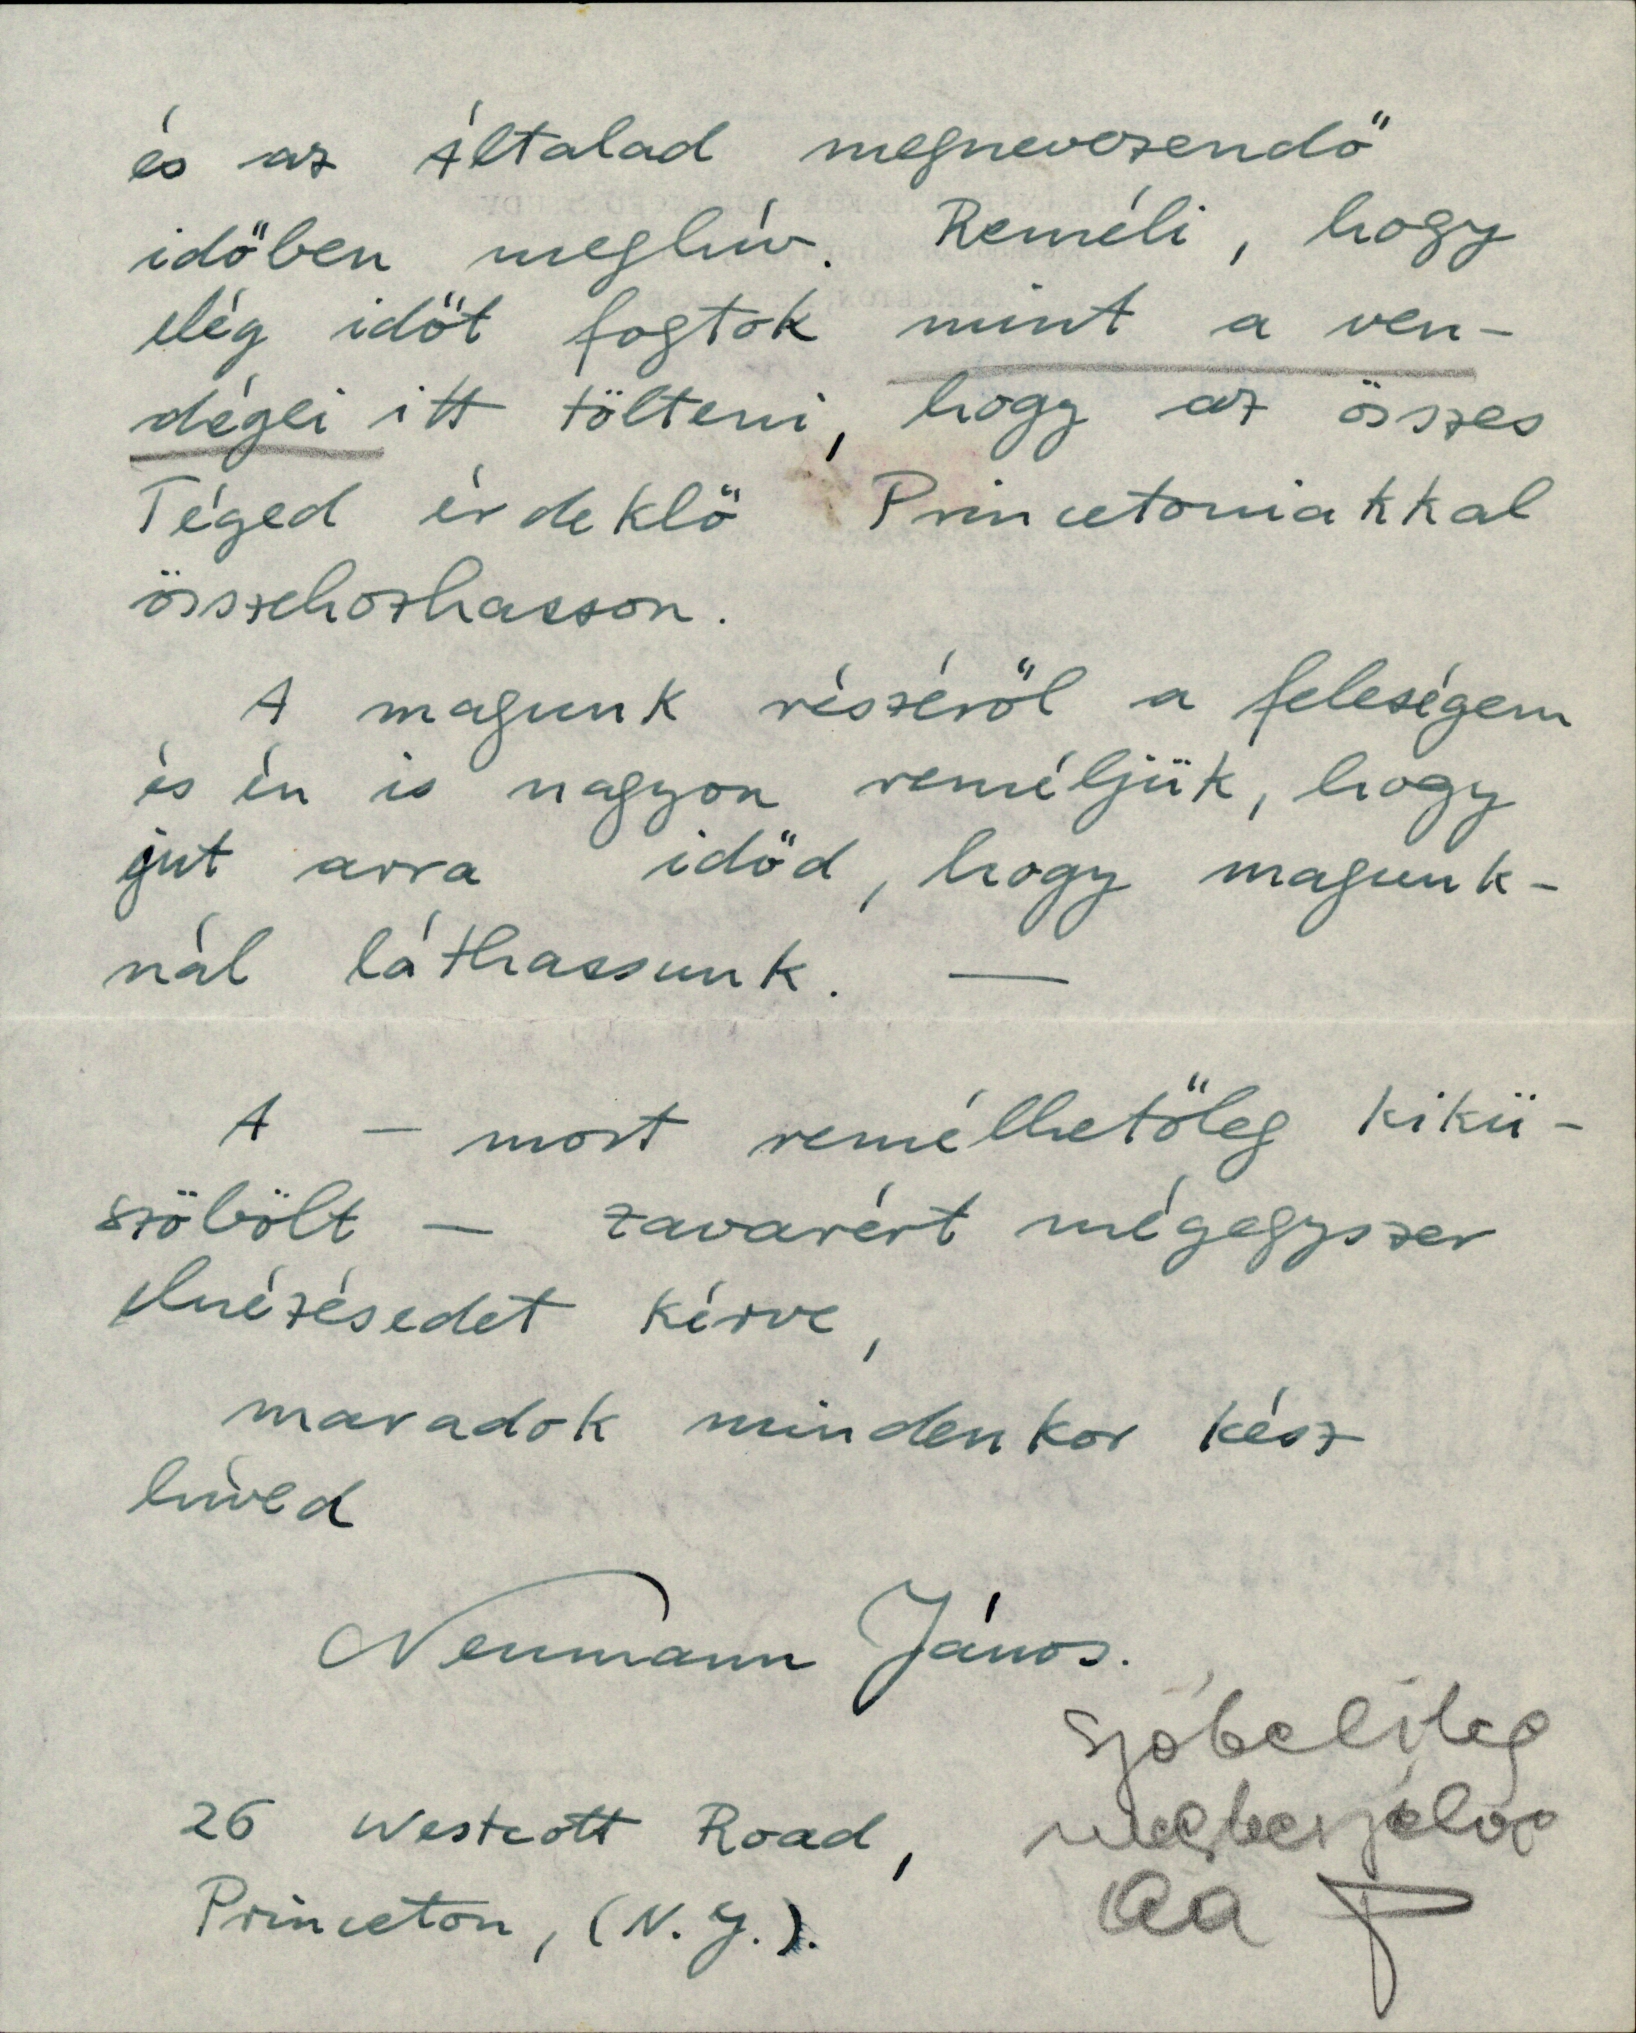 és az Általad megnevezendő
időben meghív. Reméli, hogy
elég időt fogtok mint a ven-
dégei itt tölteni, hogy az összes
Téged érdeklő Princetoniakkal
összehozhasson.
A magunk részéről a feleségem
és én is nagyon reméljük, hogy
jut arra időd, hogy magunk-
nál láthassunk. —
A — most remélhetőleg kikü-
szöbölt — zavarért mégegyszer
elnézésedet kérve,
maradok mindenkor kész
híved
Neumann János.
szóbelileg
megbeszélve
aa
26 Westcott Road,
Princeton, (N. J.).